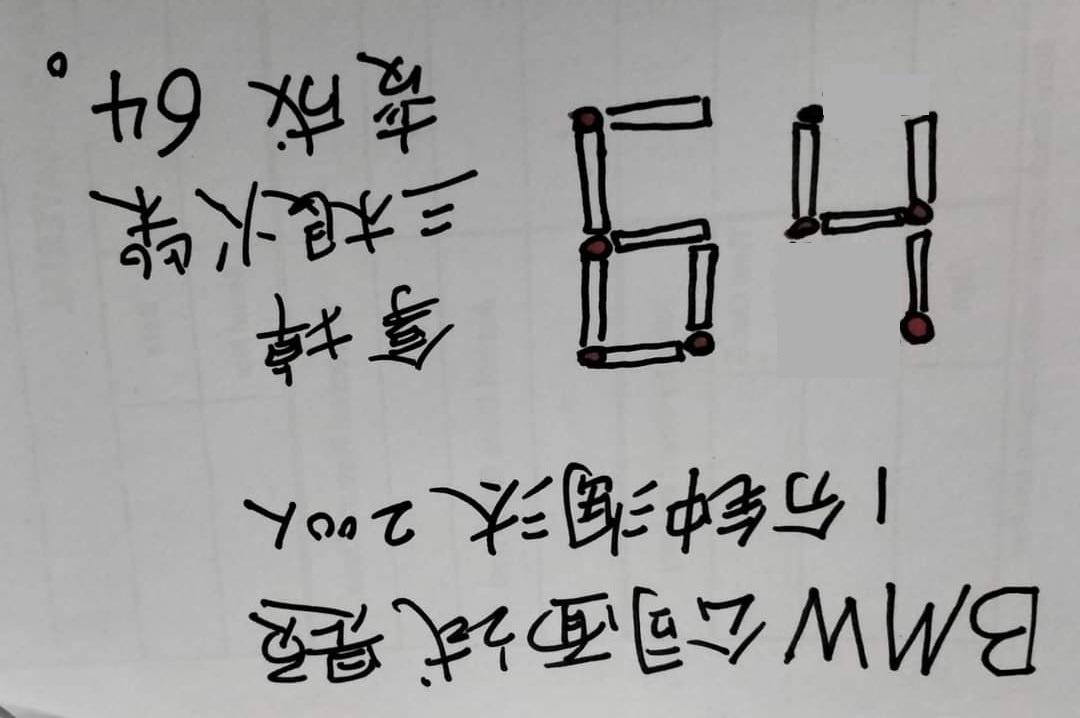 BMW公司面试题
1分钟淘汰200人
64
拿掉
三根火柴
变成 64。